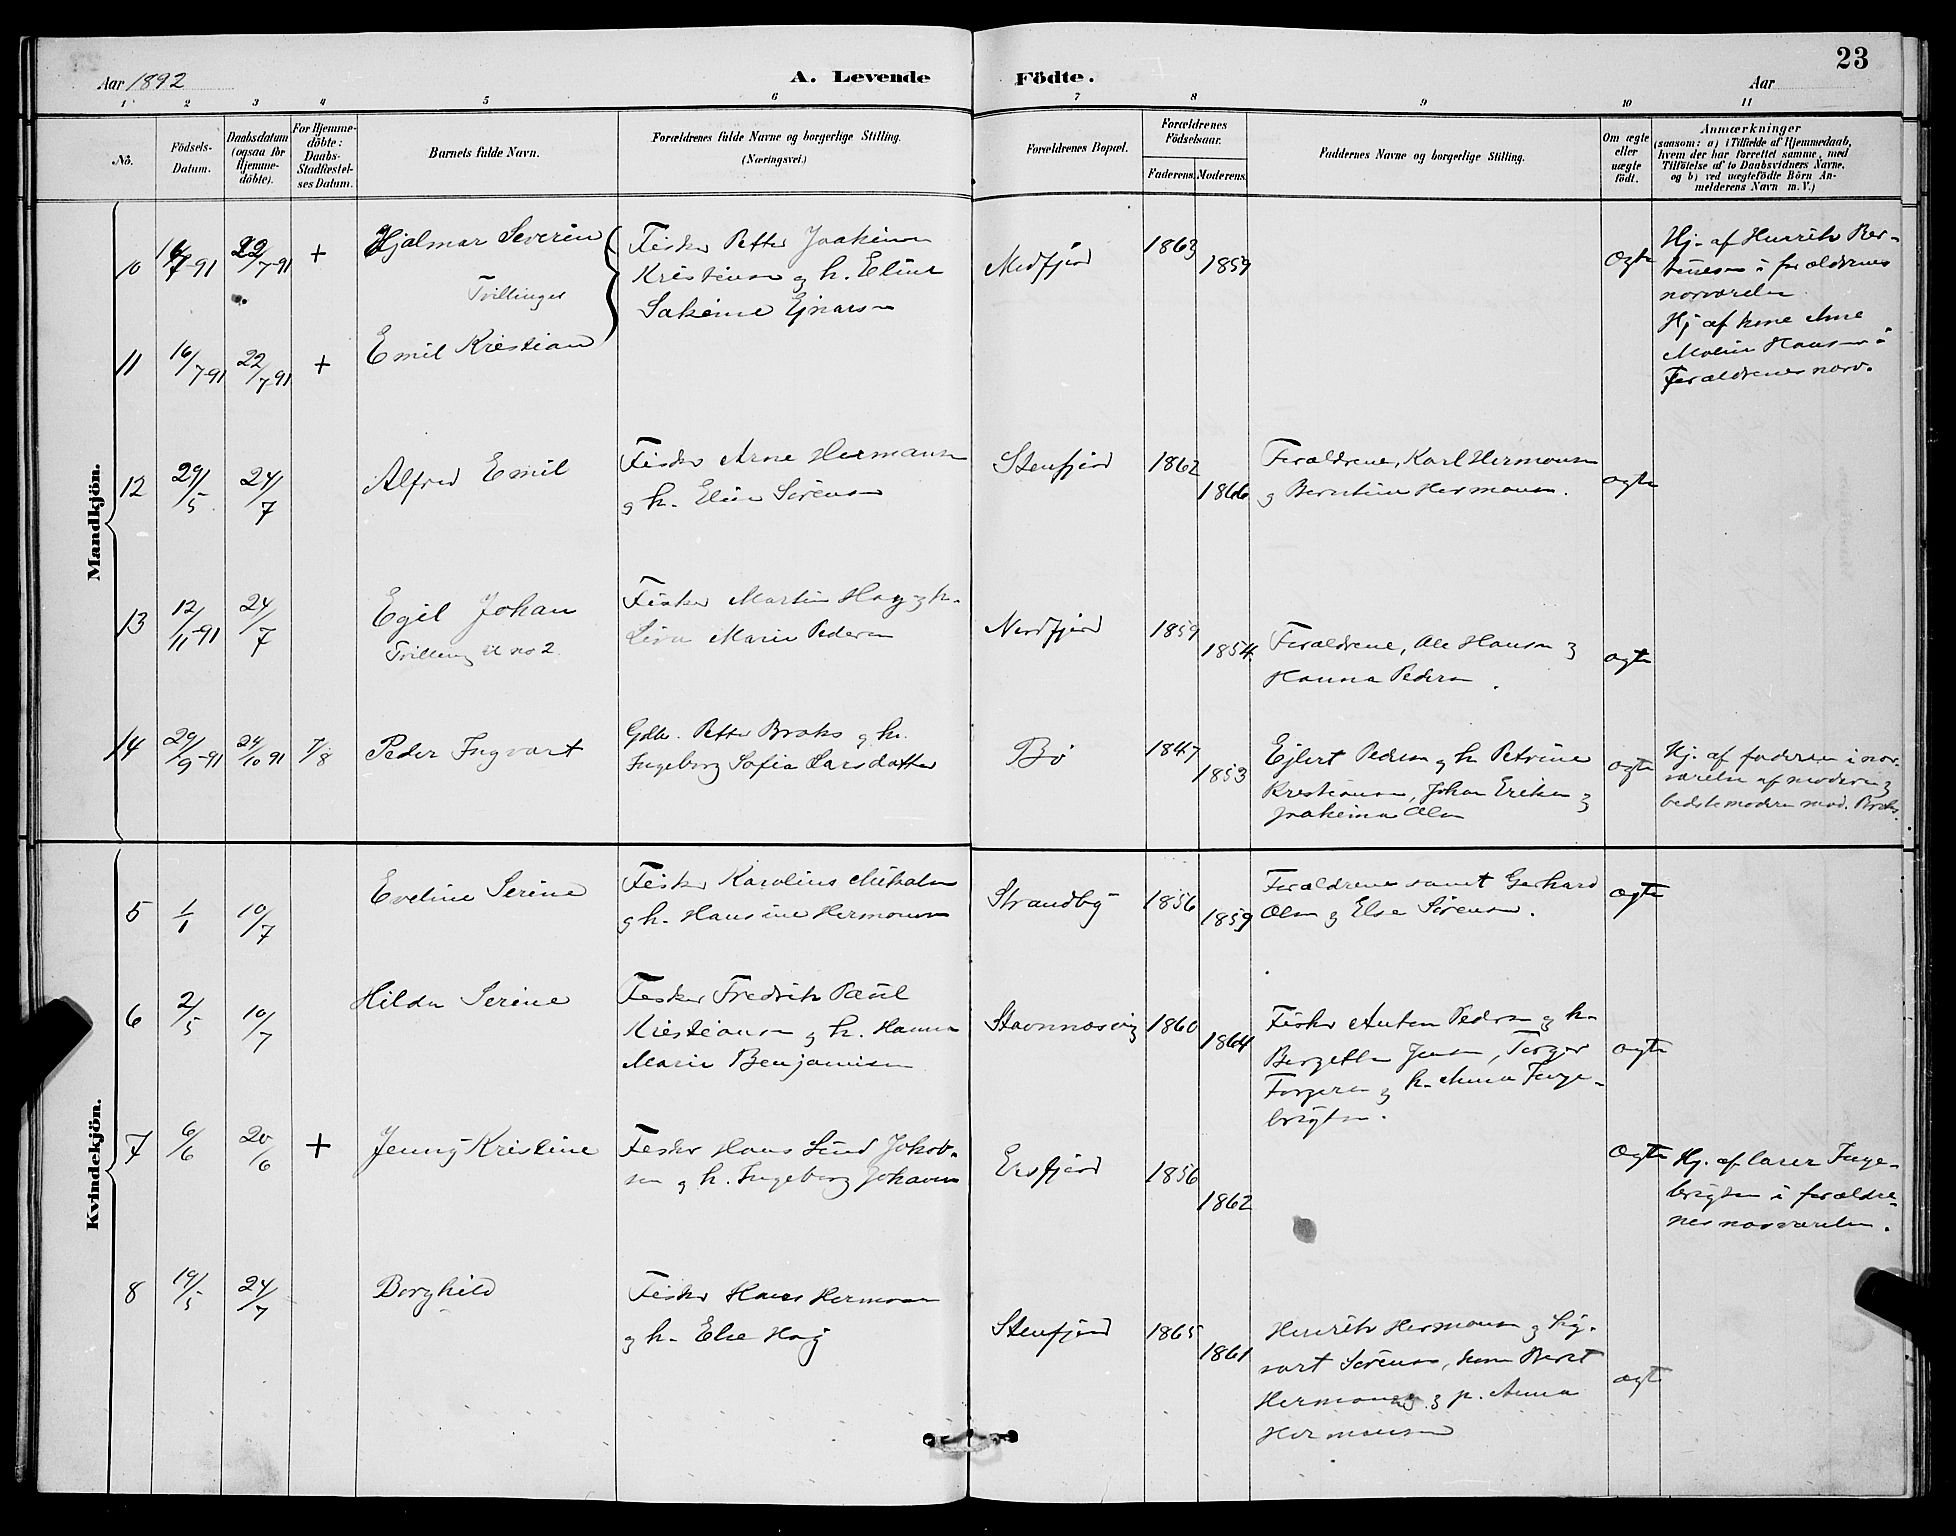 23
Aar 1892
A. Levende Födte.
Aar
1 2 3 4 5 6 7 8 9 10 11
No.
Födsels-
Datum.
Daabsdatum
(ogsaa for
Hjemme-
döbte).
For Hjemme-
döbte:
Daabs-
Stadfæstel-
ses Datum.
Barnets fulde Navn.
Forældrenes fulde Navne og borgerlige Stilling.
(Næringsvei.)
Forældrenes Bopæl.
Forældrenes
Födselsaar.
Faderens. Moderens.
Faddernes Navne og borgerlige Stilling.
Om ægte
eller
uægte
födt.
Anmærkninger
(saasom: a) i Tilfælde af Hjemmedaab,
hvem der har forrettet samme, med
Tilföielse af to Daabsvidners Navne,
og b) ved uægtefödte Börn An-
melderens Navn m. V.)
Mandkjön.
10 16/7-91 22/7-91 + Hjalmar Severin
Tvillinger
Fisker Petter Joakim
Kristiansen og h. Eline
Sakine Ejnarsen
Medfjord 1863 1859 ægte
Hj. af Henrik Ber-
tinesen i forældrenes
nærværelse
11 16/7-91 22/7-91 + Emil Kristian
Hj af kone Ane
Malin Hansen i
Forældrenes nærv.
12 29/5 24/7 Alfred Emil
Fisker Arne Hermansen
og h. Eline Sörensen
Stenfjord 1862 1866
Forældrene, Karl Hermansen
og Berntine Hermansen.
ægte
13 12/11-91 24/7 Egil Johan
Tvilling til no 2
Fisker Martin Hay og h.
Marie Pedersen
1859 1854
Forældrene, Ole Hansen og
Hanna Pedersen.
ægte
14 29/9-91 24/10 91 7/8 Peder Ingvart
Gdbr. Petter Broks og h.
Ingeborg Sofia Larsdatter
Bö 1847 1853
Ejlert Pedersen og h. Petrine
Kristiansen, Johan Eriksen og
Joakima Olsen
ægte
Hj. af faderen i nær-
værelse af moderen og
bedstemoderen mad. Broks.
Kvindekjön.
5 1/1 10/7 Eveline Serine
Fisker Karolius Mikalsen
og h. Hansine Hermansen
Strandby 1856 1859
Forældrene samt Gerhard
Olsen og Else Sörensen.
ægte
6 2/5 10/7 Hilda Serine
Fisker Fredrik Paul
Kristiansen og h. Hanna
Marie Benjaminsen
Stavnnæsvig 1860 1864
Fisker Anton Pedersen og h.
Bergette Jensen, Torger
Torgersen og h. Anna Inge-
brigtsen.
ægte
7 6/6 20/6 + Jenny Kristine
Fisker Hans Lind Jakob-
sen og h. Ingeborg Johansen
Ersfjord 1856 1862 ægte
Hj. af Lars Inge-
brigtsen i forældre-
nes nærværelse.
8 19/5 24/7 Borghild
Fisker Hans Hermansen
og h. Else Haj
Stenfjord 1865 1861
Henrik Hermansen og Sig-
vart Sörensen, kone Beret
Hermansen og p. Anna
Hermansen
ægte